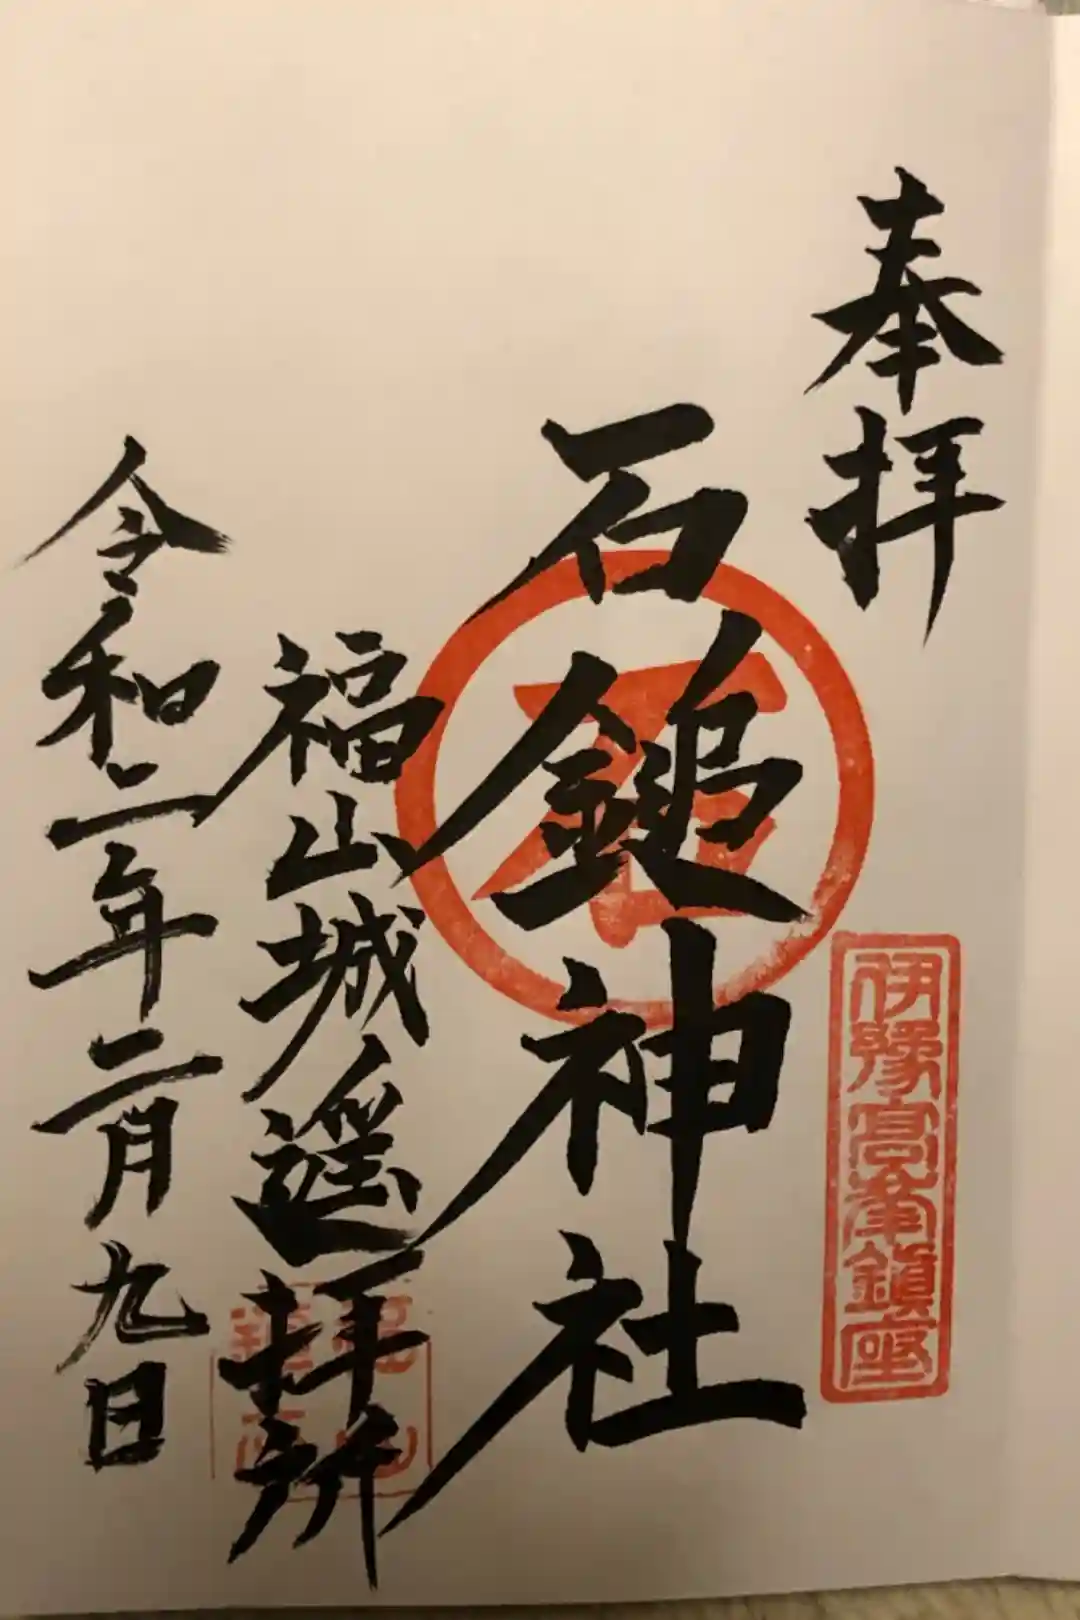 奉拝
伊豫高峯鎮座
石鎚神社
石
福山城遥拝所
令和二年二月九日